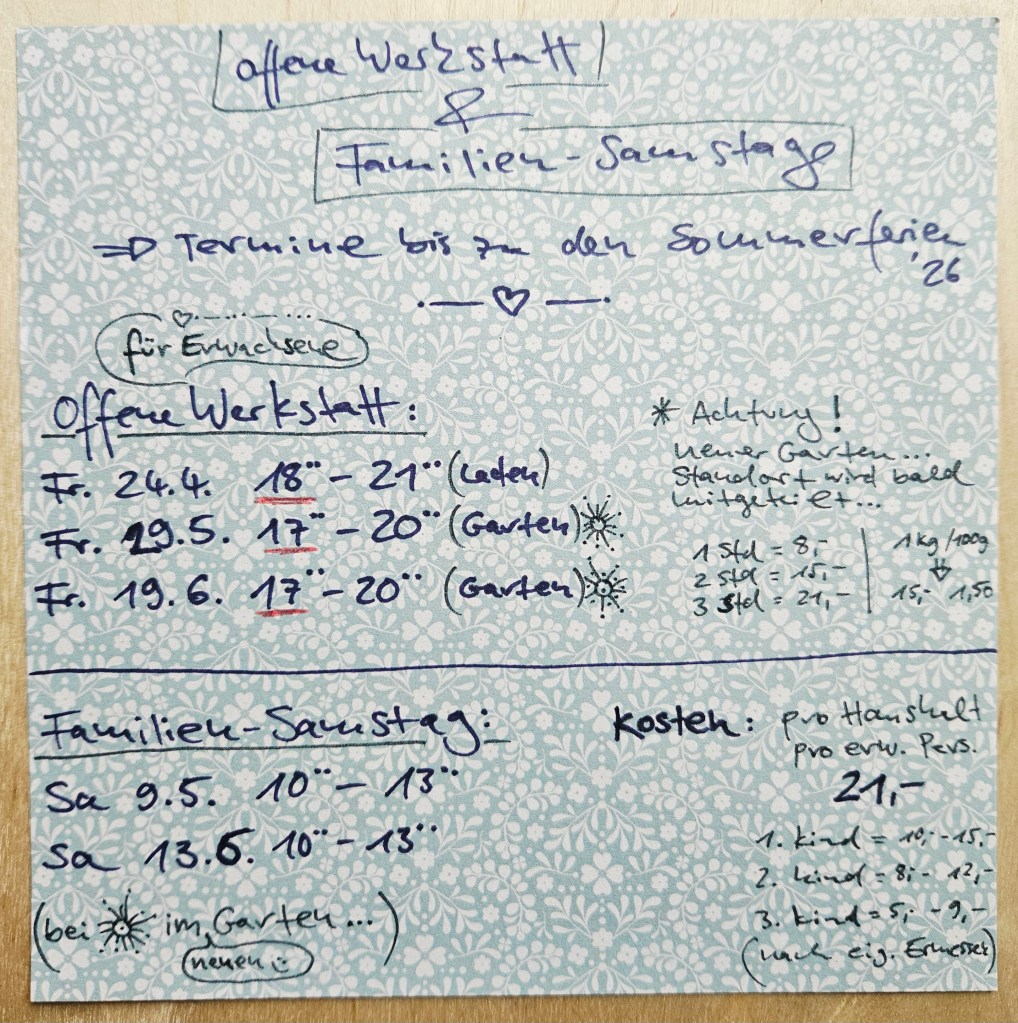 offene Werkstatt
&
Familien-Samstage
⇒ Termine bis zu den Sommerferien
'26
für Erwachsene
Offene Werkstatt:
Fr. 24.4. 18¨ - 21¨ (Laden)
Fr. 29.5. 17¨ - 20¨ (Garten)
Fr. 19.6. 17¨ - 20¨ (Garten)
* Achtung!
neuer Garten...
Standort wird bald
mitgeteilt...
1 Std = 8,-
2 Std = 15,-
3 Std = 21,-
1 kg /100g
15,- 1,50
Familien-Samstag:
Sa 9.5. 10¨ - 13¨
Sa 13.6. 10¨ - 13¨
(bei im Garten...)
neuen
Kosten: pro Haushalt
pro erw. Pers.
21,-
1. Kind = 10,- -15,-
2. Kind = 8,- - 12,-
3. Kind = 5,- - 9,-
(nach eig. Ermessen)